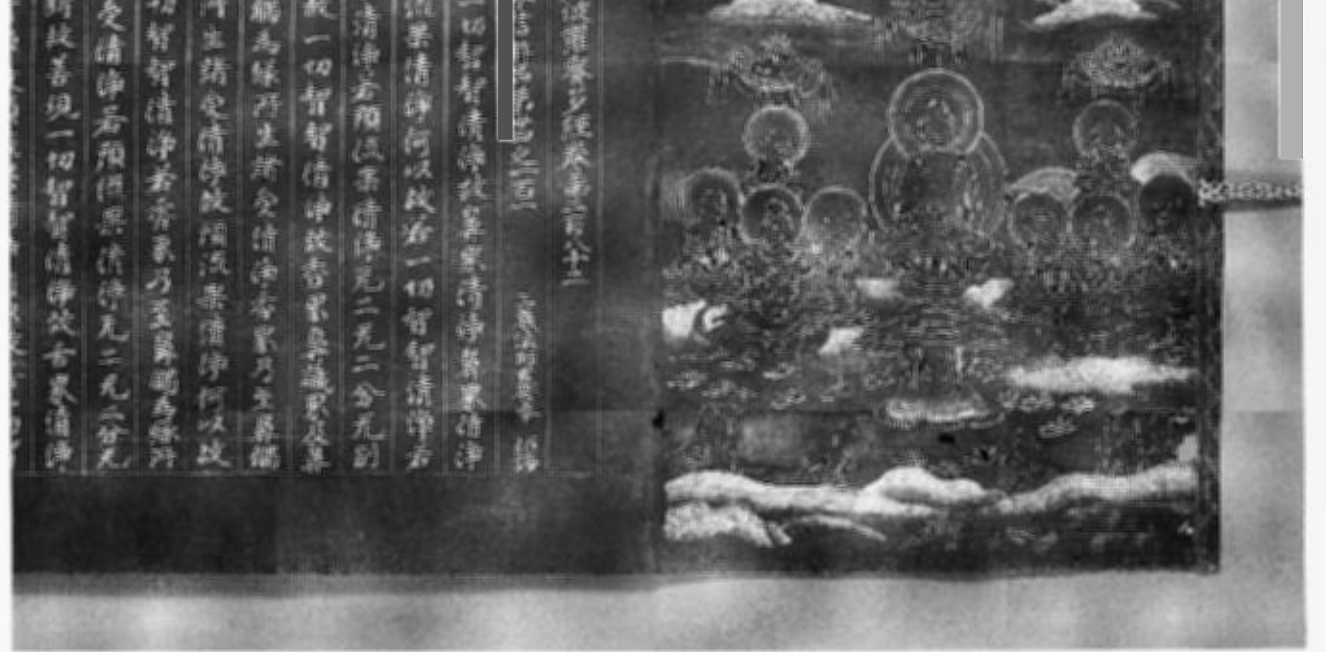 波羅蜜多經卷第二百八十二
之一百 三藏法師玄奘 詔譯
一切智智清淨故鼻界清淨鼻界清淨
流果清淨何以故若一切智智清淨若
清淨若預流果清淨无二无二分无別
故一切智智清淨故香界鼻識界及鼻
觸為緣所生諸受清淨香界乃至鼻觸
所生諸受清淨故預流果清淨何以故
切智智清淨若香界乃至鼻觸為緣所
受清淨若預流果清淨无二无二分无
故善現一切智智清淨故舌界清淨